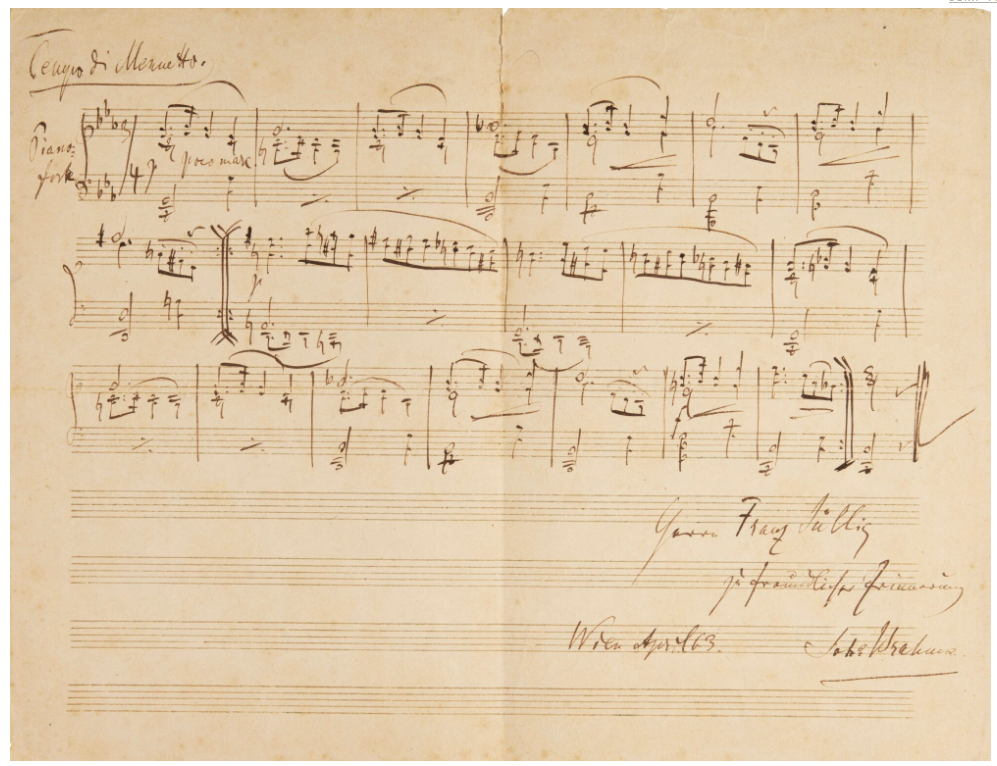 Tempo di Menuetto.
Piano-
forte
poco marc.
p
Herrn Franz
zu freundlicher Erinnerung
Wien April 63.
Johs Brahms.